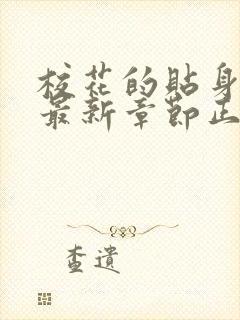 校花的貼身
最新章節正
查遺